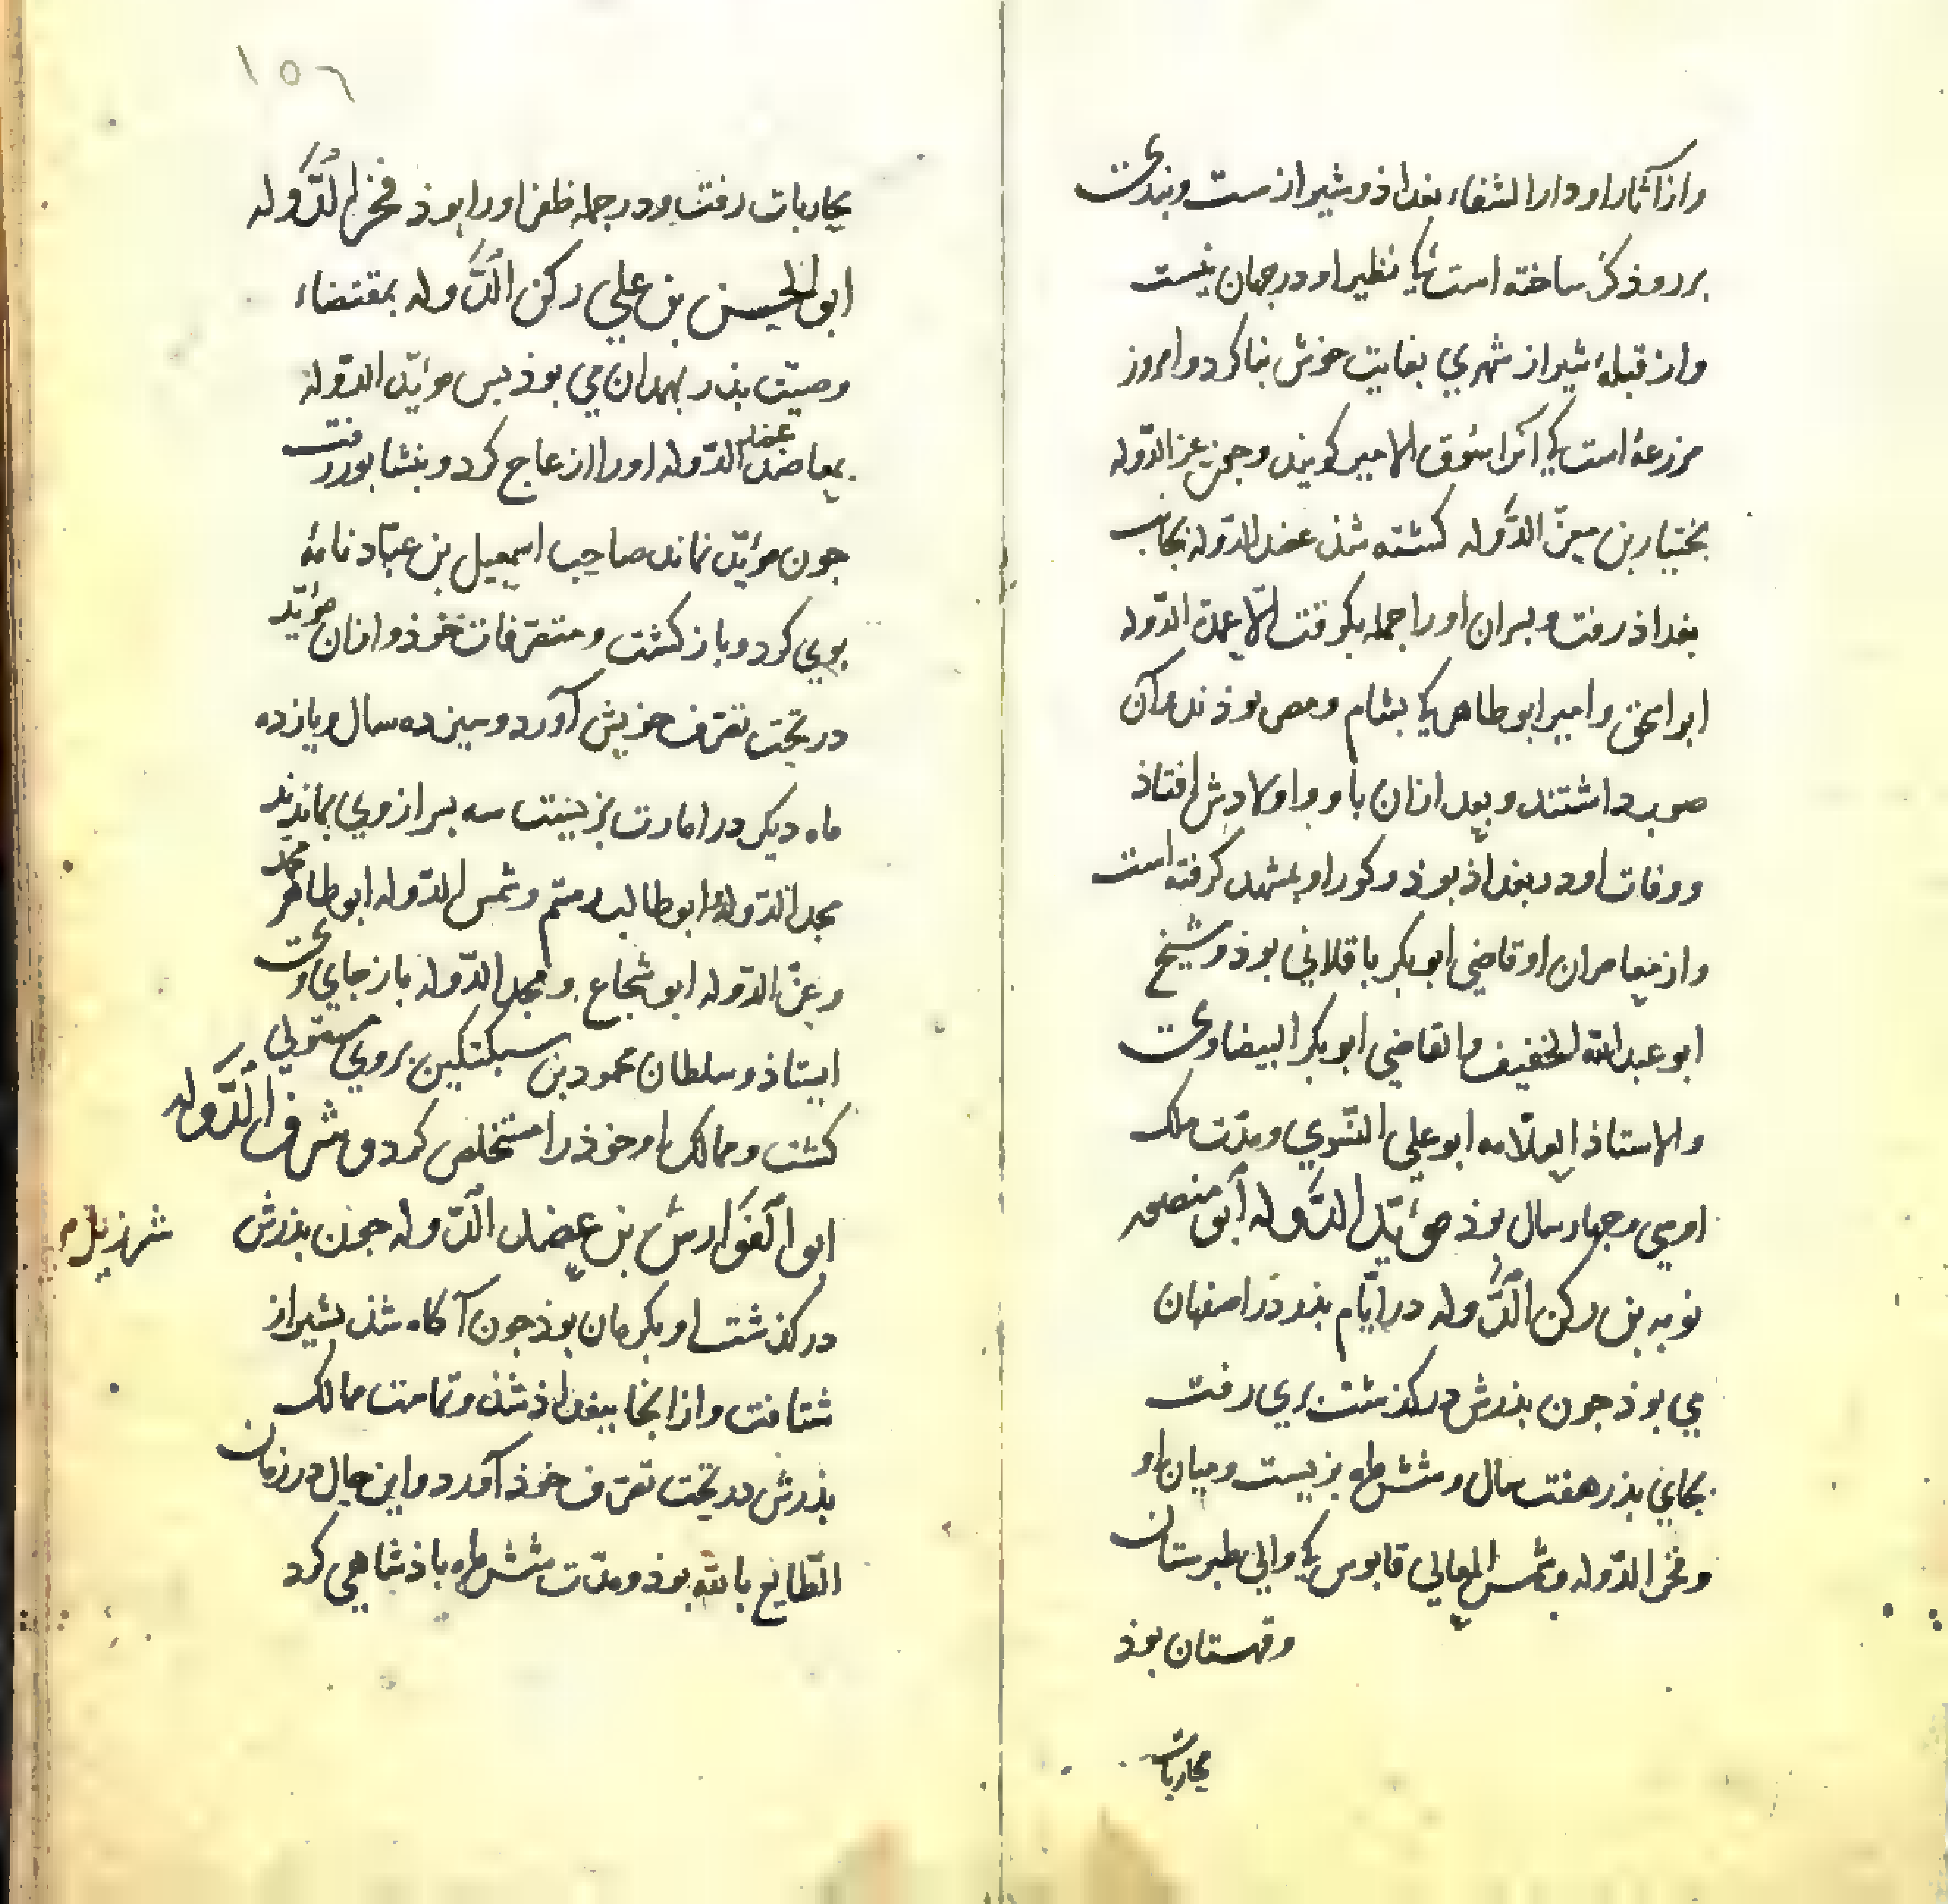 وازآثار او دار الشفاء بغداذ و شیرازست و بندی
بر روذ کر ساخته است کی نظیر او در جهان نیست
و از قبلهٔ شیراز شهری بغایت خوش بنا کرد و امروز
مزرعهٔ است کی آنرا سوق الامیر کویند و جون عز الدّوله
بختیار بن معزّ الدَّوله کشته شذ عضد الدّوله بجانب
بغداذ رفت و بسران او را جمله بکرفت الّا عمدة الدّوله
ابو اسحق و امیر ابو طاهر کی بشام و مصر بوذند و آن
صوب داشتند و بعد ازان با و اولادش افتاذ
و وفات او در بغداذ بوذ و کور او بمشهد کرفته است
و از معاصران او قاضی ابو بکر باقلانی بوذ و شیخ
ابو عبد الله الخفیف و القاضی ابو بکر البیضاوی
و الاستاذ العلّامه ابو علی النّسوی و مدّت ملک
او سی و جهار سال بوذ مؤیّد الدَّوله ابو منصور
بویه بن رکن الدَّوله در ایّام بذر در اصفهان
می بوذ جون بذرش درکذشت بری رفت
بجای بذر هفت سال و شش ماه بزیست و میان او
و فخر الدّوله و شمس المعالی قابوس کی والی طبرستان
و قهستان بوذ
محاربات
١٥٦
محاربات رفت و در جمله ظفر او را بوذ فخر الدَّوله
ابو الحسن بن علی رکن الدَّوله بمقتضاء
وصیّت بذر بهمدان می بوذ بس مؤیّد الدّوله
بمعاضدت عضد الدّوله او را ازعاج کرد و بنشابور رفت
جون مؤیّد نماند صاحب اسمعیل بن عبّاد نامهٔ
بوی کرد و باز کشت و متصرّفات خوذ و ازان مؤیّد
در تحت تصرّف خویش آورد و سیزده سال و یازده
ماه دیکر در امارت بزیست سه بسر از وی بماندند
مجد الدّوله ابو طالب رستم و شمس الدّوله ابو طاهر محمد
و عزّ الدّوله ابو شجاع و مجد الدّوله باز جای وی
ایستاذ و سلطان محمود بن سبکتکین بر وی مستولی
کشت و ممالک او خوذ را مستخلص کرد و شرف الدَّوله
ابو الفوارس بن عضد الدَّوله جون بذرش
شرزیل
درکذشت او بکرمان بوذ جون آکاه شذ بشیراز
شتافت و ازانجا ببغداذ شذ و تمامت ممالک
بذرش در تحت تصرّف خوذ آورد و این حال در زمان
الطّایع بالله بوذ و مدّت شش ماه باذشاهی کرد